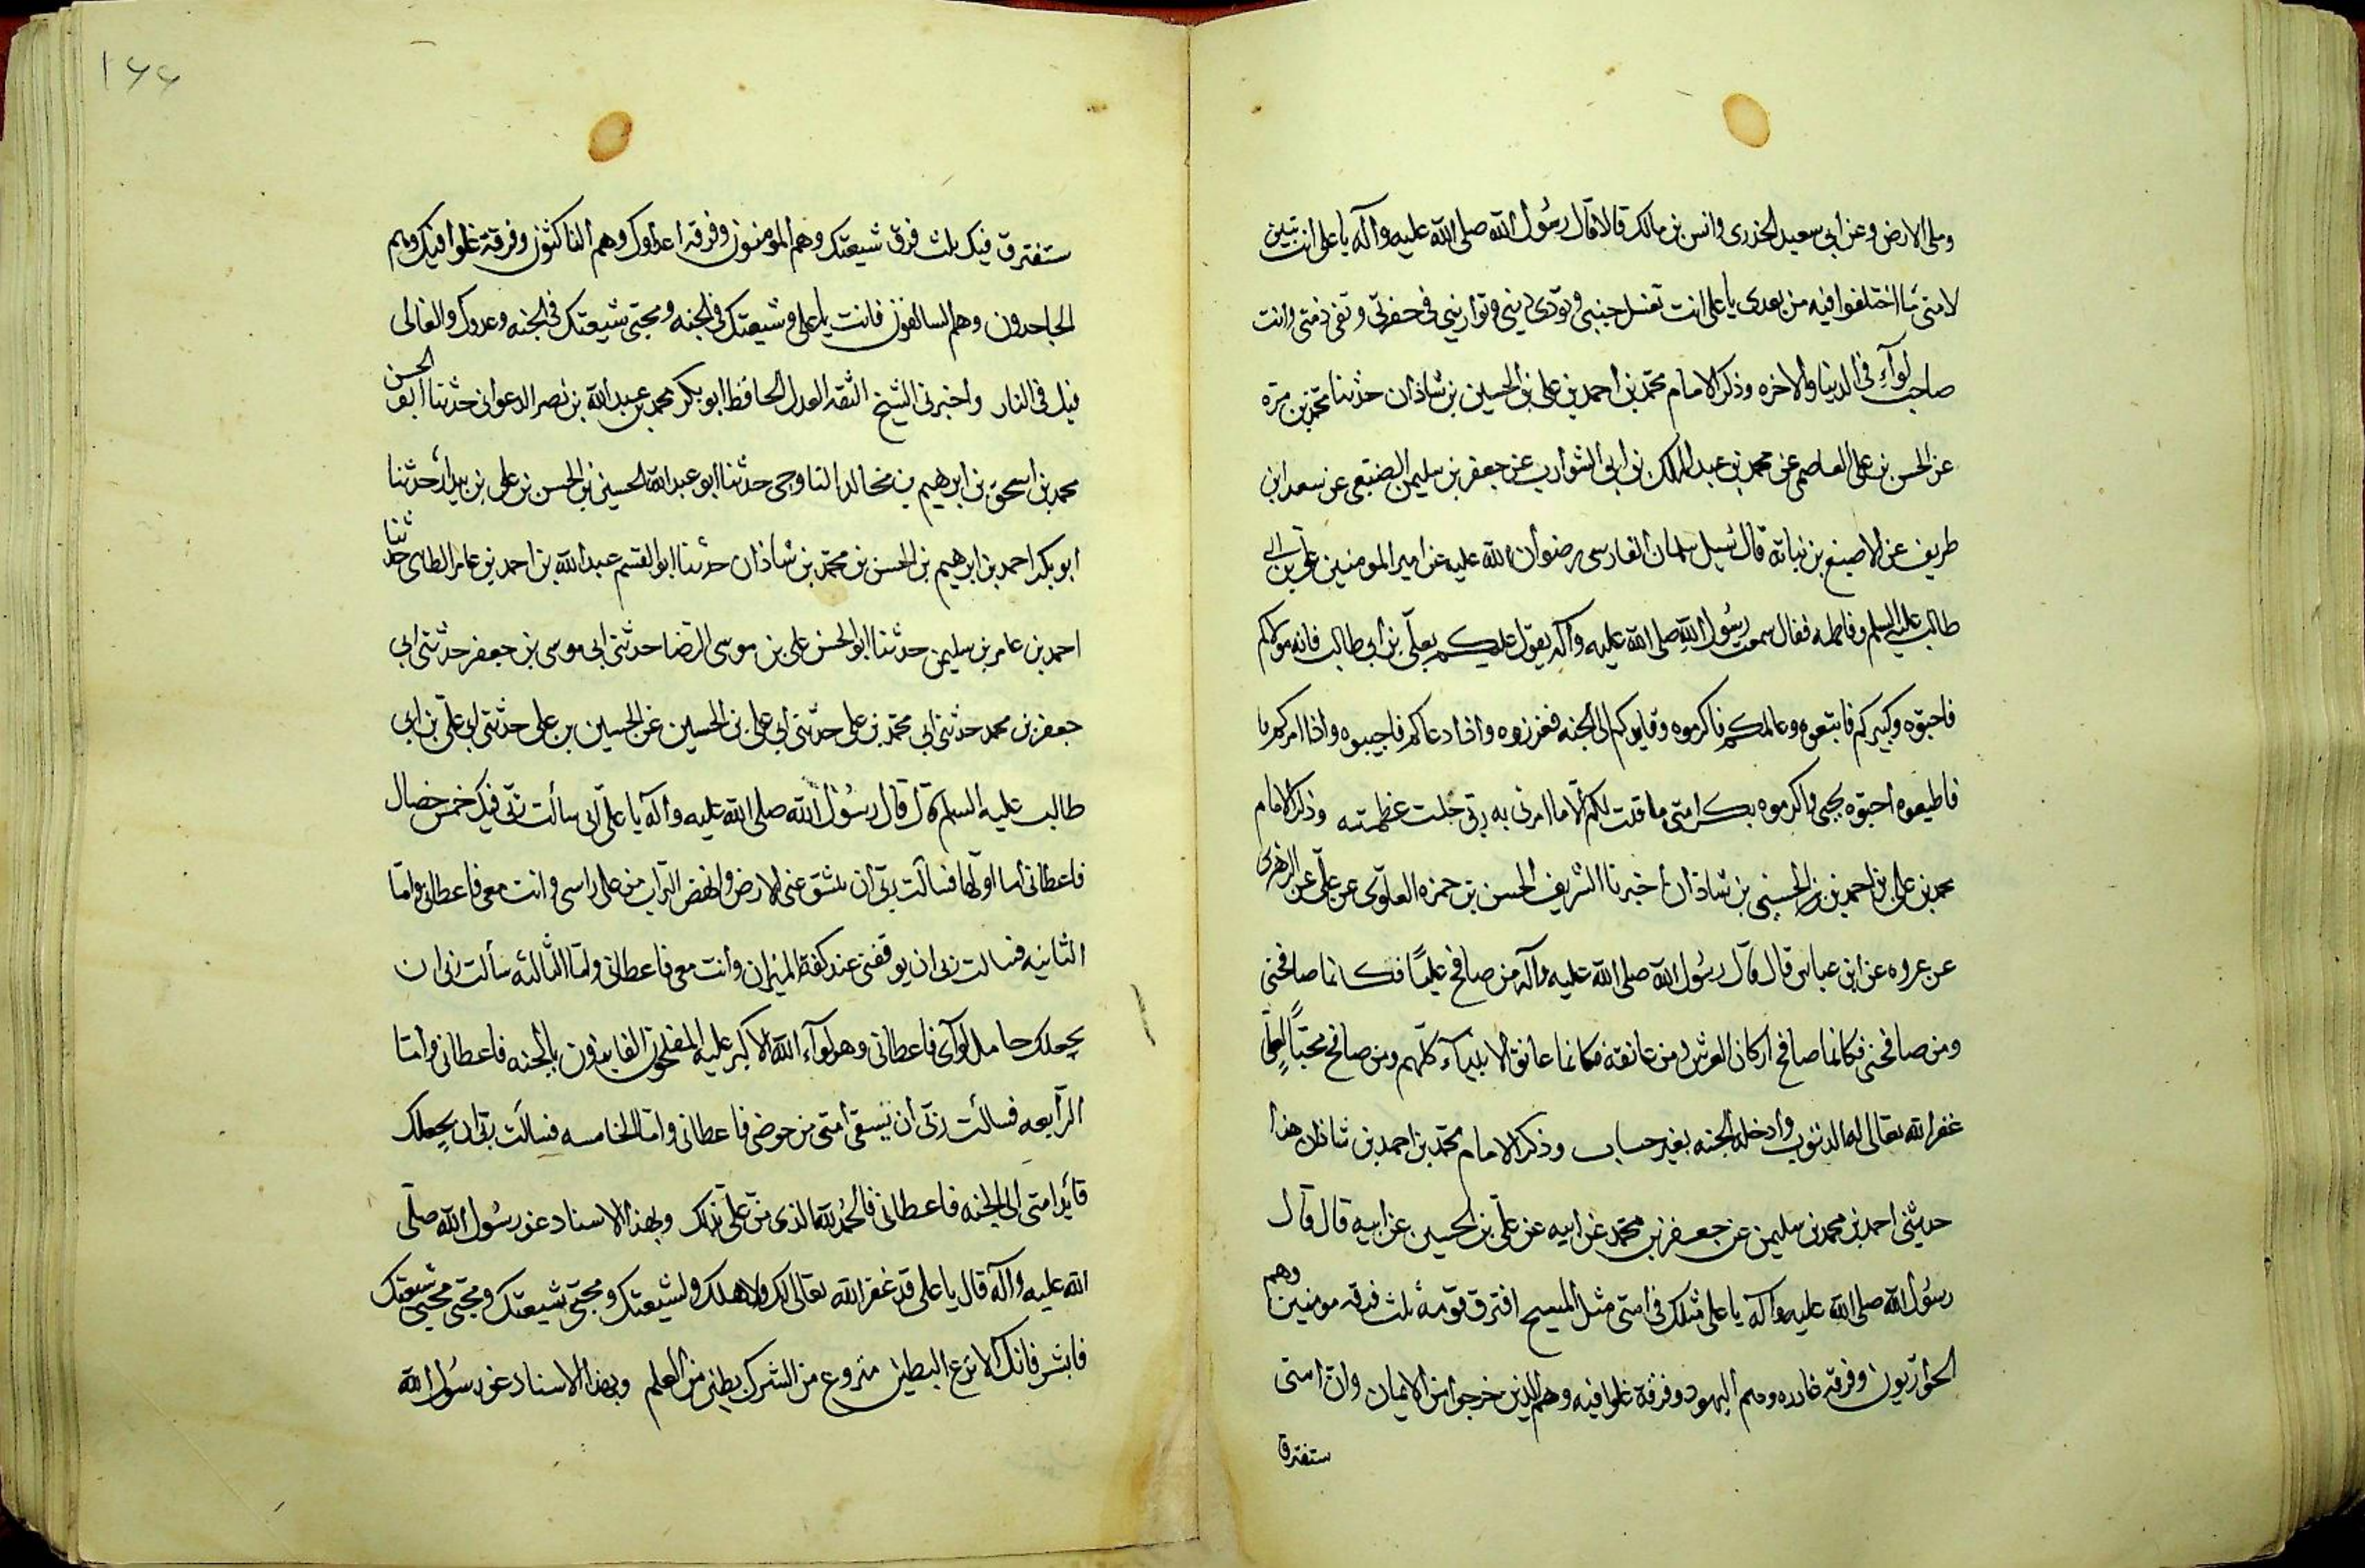 وملى الارض وعن ابى سعيد الخدرى وانس بن مالك قالا قال رسول الله صلى الله عليه وآله يا على انت تبين
لامتى ما اختلفوا فيه من بعدى يا على انت تغسل جثتى وتؤدى دينى وتوارينى فى حفرتى وتفى ذمتى وانت
صاحب لوآءِ فى الدنيا والاخره وذكر الامام محمد بن احمد بن على بن الحسين بن شاذان حدثنا محمد بن مرة
عن الحسن بن على العاصمى عن محمد بن عبد الملك بن ابى الشوارب عن جعفر بن سليمن الضبعى عن سعد ابن
طريف عن الاصبغ بن نباتة قال سئل سلمان الفارسى رضوان الله عليه عن امير المومنين على بن ابى
طالب عليه السلم وفاطمه فقال سمعت رسول الله صلى الله عليه وآله يقول عليكم بعلى بن ابى طالب فانه مولاكم
فاحبّوه وكبيركم فاتبعوه وعالمكم فاكرموه وقايدكم الى الجنه فعززوه واذا دعاكم فاجيبوه واذا امركم
فاطيعوه احبّوه بحبى واكرموه بكرامتى ما قلت لكم الا ما امرنى به ربى جلت عظمته وذكر الامام
محمد بن على بن احمد بن الحسين بن شاذان اخبرنا الشريف الحسن بن حمزه العلوى عن على عن الزهرى
عن عروه عن ابن عباس قال قال رسول الله صلى الله عليه وآله من صافح عليًا فكانما صافحنى
ومن صافحنى فكانما صافح اركان العرش ومن عانقه فكانما عانق الانبيآء كلهم ومن صافح محبًا لعلى
غفر الله تعالى له الذنوب وادخله الجنه بغير حساب وذكر الامام محمد بن احمد بن شاذان هذا
حدثنى احمد بن محمد بن سليمن عن جعفر بن محمد عن ابيه عن على بن الحسين عن ابيه قال قال
رسول الله صلى الله عليه وآله يا على مثلك فى امتى مثل المسيح افترق قومه ثلث فرقه مومنين وهم
الحواريون وفرقه عاده وهم اليهود وفرقة غلوا فيه وهم الذين خرجوا من الايمان وان امتى
ستفترق
١٦٦
ستفترق فيك ثلث فرق شيعتك وهم المومنون وفرقه اعداوك وهم الناكثون وفرقة غلوا فيك وهم
الجاحدون وهم السالفون فانت يا على وشيعتك فى الجنه ومحبى شيعتك فى الجنه وعدوك والغالى
فيك فى النار واخبرنى الشيخ الثقة العدل الحافظ ابو بكر محمد بن عبد الله بن نصر حدثنا ابو الحسن
محمد بن اسحق بن ابرهيم بن مخالد حدثنا ابو عبد الله الحسين بن الحسن بن على بن بندار حدثنا
ابو بكر احمد بن ابرهيم بن الحسن بن محمد بن شاذان حدثنا ابو القسم عبد الله بن احمد بن عامر الطائى حدثنا
احمد بن عامر بن سليمن حدثنا ابو الحسن على بن موسى الرضا حدثنى ابى موسى بن جعفر حدثنى ابى
جعفر بن محمد حدثنى ابى محمد بن على حدثنى ابى على بن الحسين عن الحسين بن على حدثنى ابى على بن ابى
طالب عليه السلم قال قال رسول الله صلى الله عليه وآله يا على انى سألت ربى فيك خمس خصال
فاعطانى اما اولها فسألت ربى ان تنشق عنى الارض وانفض التراب من على راسى وانت معى فاعطانى واما
الثانيه فسالت ربى ان يوقفنى عند كفة الميزان وانت معى فاعطانى واما الثالثه سألت ربى ان
يجعلك حامل لوآى فاعطانى وهو لوآء الله الاكبر عليه المفلحون الفايزون بالجنه فاعطانى واما
الرابعه فسالت ربى ان تسقى امتى من حوضى فاعطانى واما الخامسه فسألت ربى ان يجعلك
قائد امتى الى الجنه فاعطانى فالحمد لله الذى من على بذلك وبهذا الاسناد عن رسول الله صلى
الله عليه وآله قال يا على قد غفر الله تعالى لك ولاهلك ولشيعتك ومحبى شيعتك ومحبى محبى شيعتك
فابشر فانك الانزع البطين منزوع من الشرك بطين من العلم وبهذا الاسناد عن رسول الله